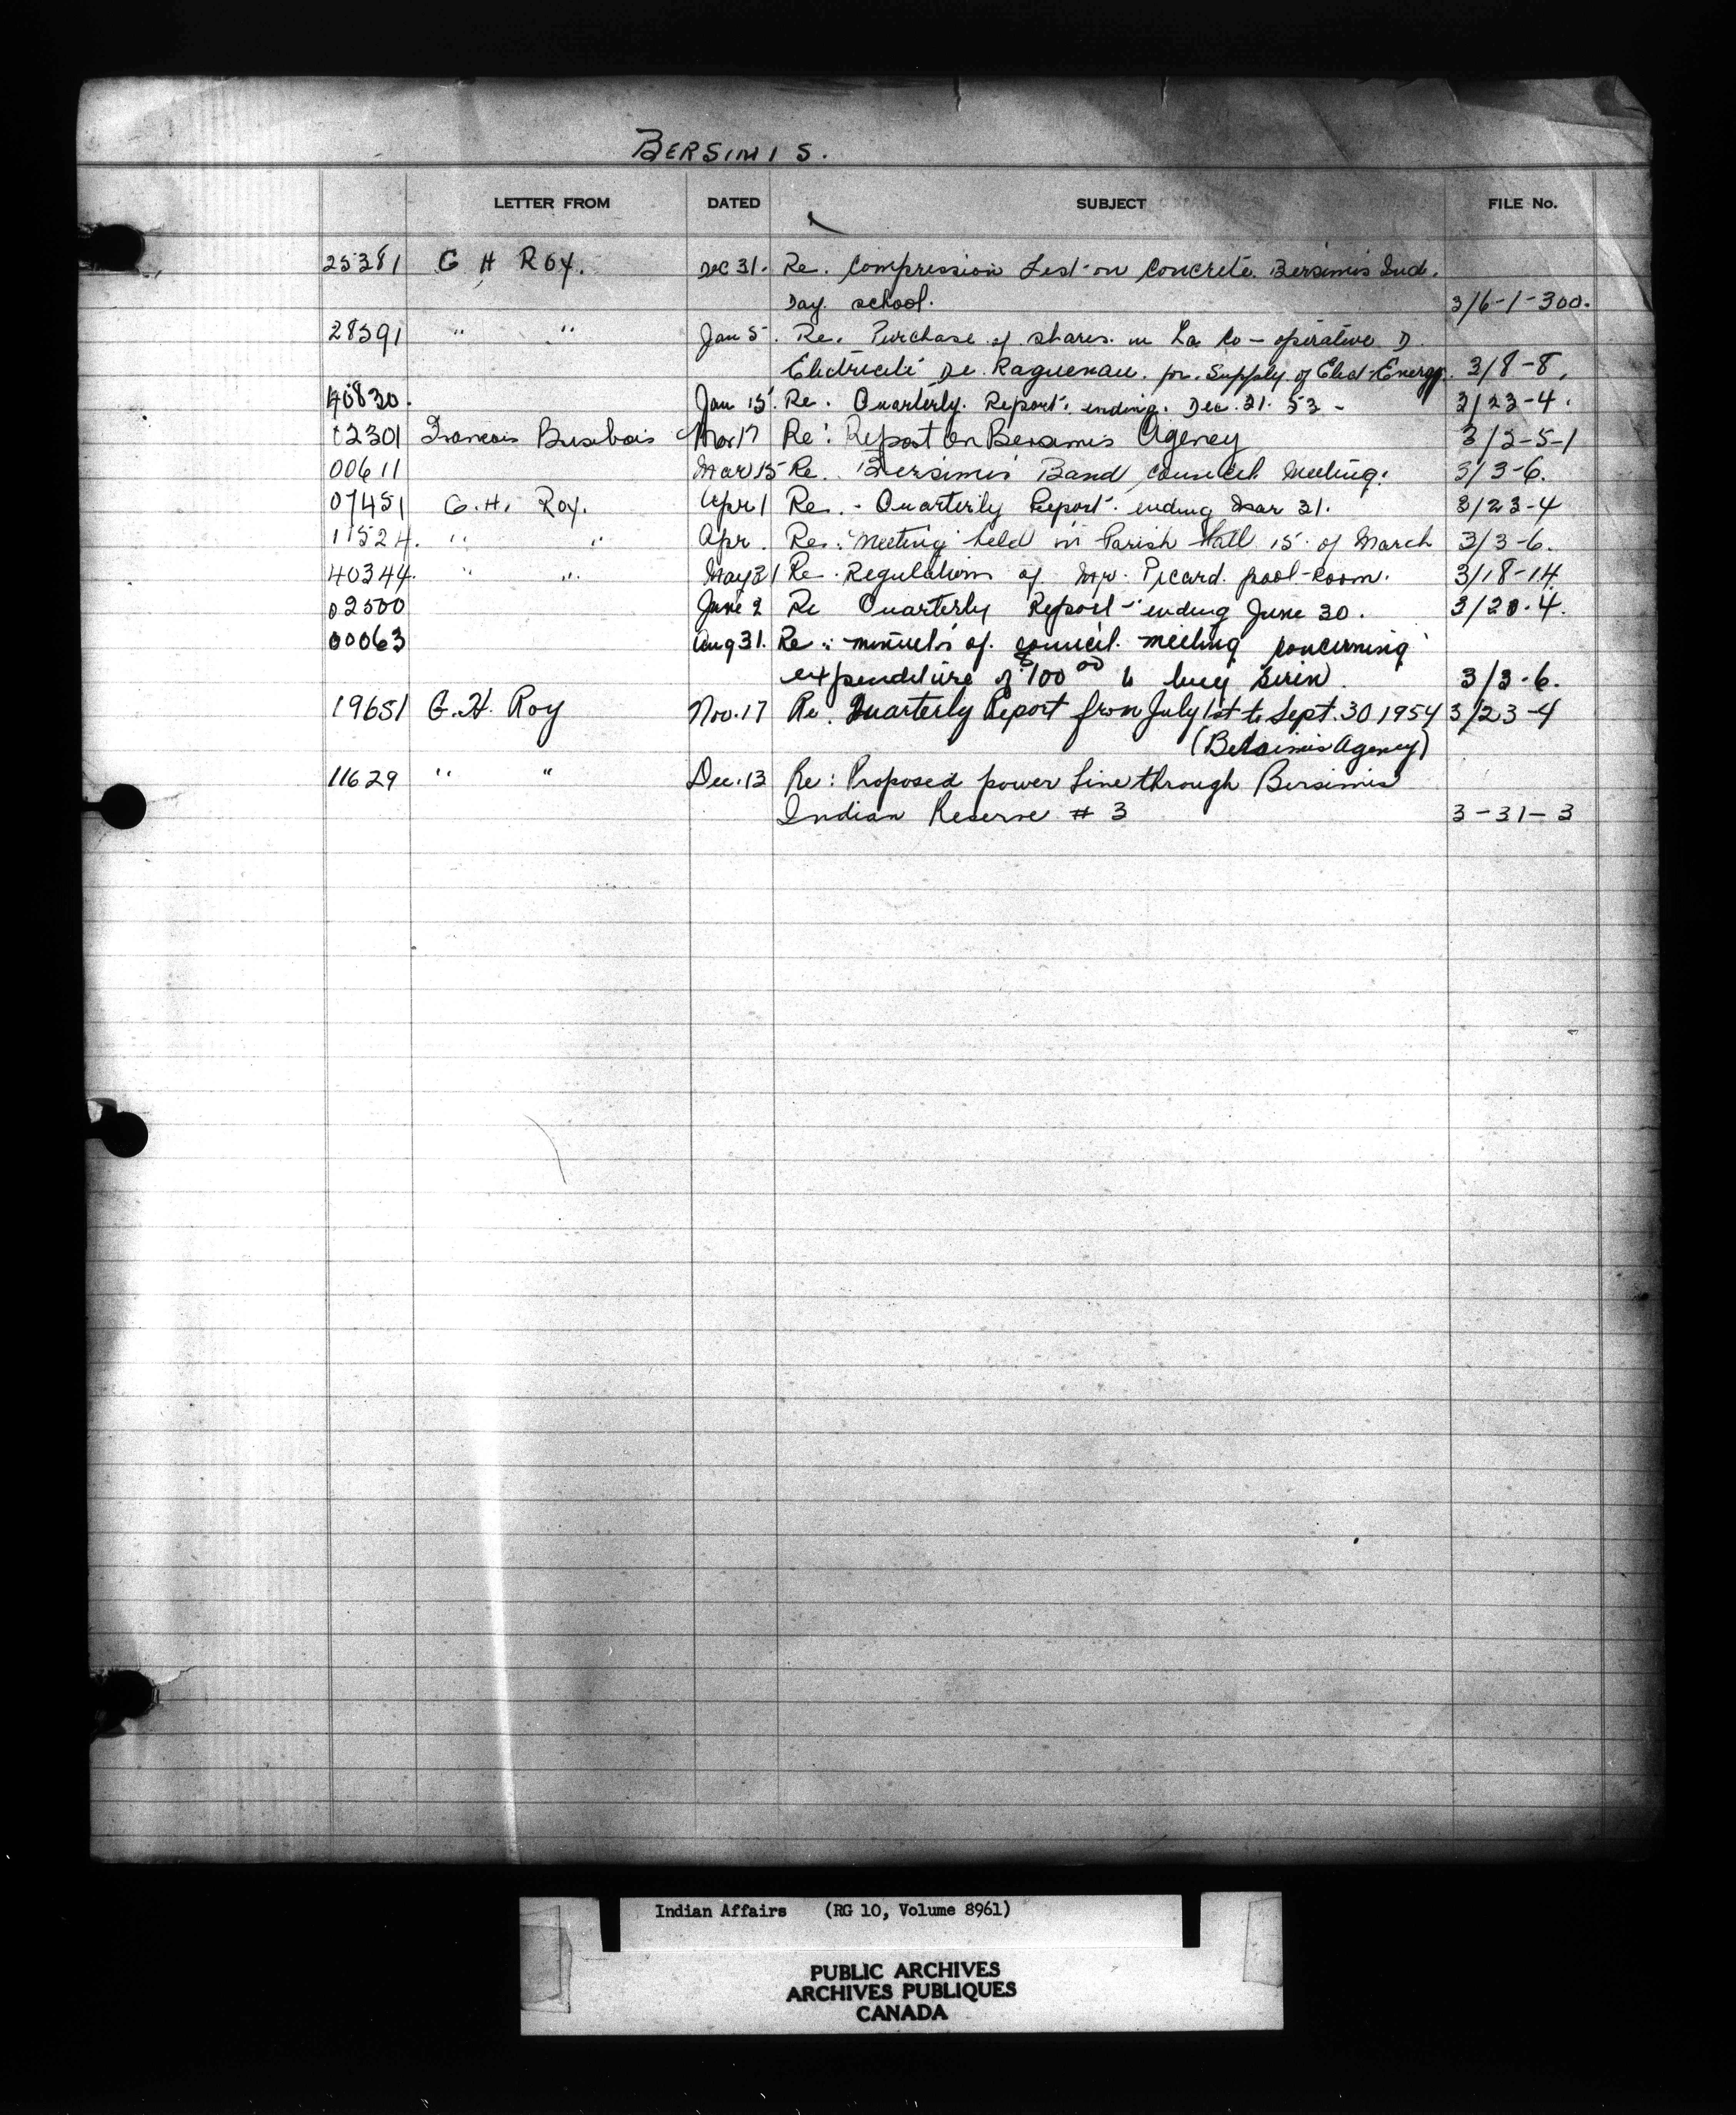 BERSIMIS.
LETTER FROM DATED SUBJECT FILE No.
25381 G H Roy. Dec 31. Re. Compression Test on Concrete Bersimis Ind.
Day. school. 3/6-1-300.
28591 " " Jan 5. Re. Purchase of shares in La Co-operative D
Electricité De Raguenau. for Supply of Elect-Energy. 3/8-8.
40830. Jan 15. Re. Quarterly. Report. ending. Dec. 31. 53 - 3/23-4.
02301 Francois Mar 17 Re: Report on Bersimis Agency 3/2-5-1
00611 Mar 15 Re. Bersimis Band council Meeting. 3/3-6.
07451 G.H. Roy. Apr 1 Re. - Quarterly Report. ending Mar 31. 3/23-4
11524. " " Apr. Re: Meeting held in Parish Hall 15 of March 3/3-6.
40344. " " May 31 Re. Regulations of Mr. Picard. pool-room. 3/18-14.
02500 June 2 Re Quarterly Report - ending June 30. 3/20-4.
00063 Aug 31. Re: minutes of. council. meeting concerning
expenditure of $100 00 to buy siren. 3/3-6.
19651 G.H. Roy Nov. 17 Re. Quarterly Report from July 1st to Sept. 30 1954 3/23-4
(Bersimis Agency)
11629 " " Dec. 13 Re: Proposed power line through Bersimis
Indian Reserve # 3 3-31-3
Indian Affairs (RG 10, Volume 8961)
PUBLIC ARCHIVES
ARCHIVES PUBLIQUES
CANADA